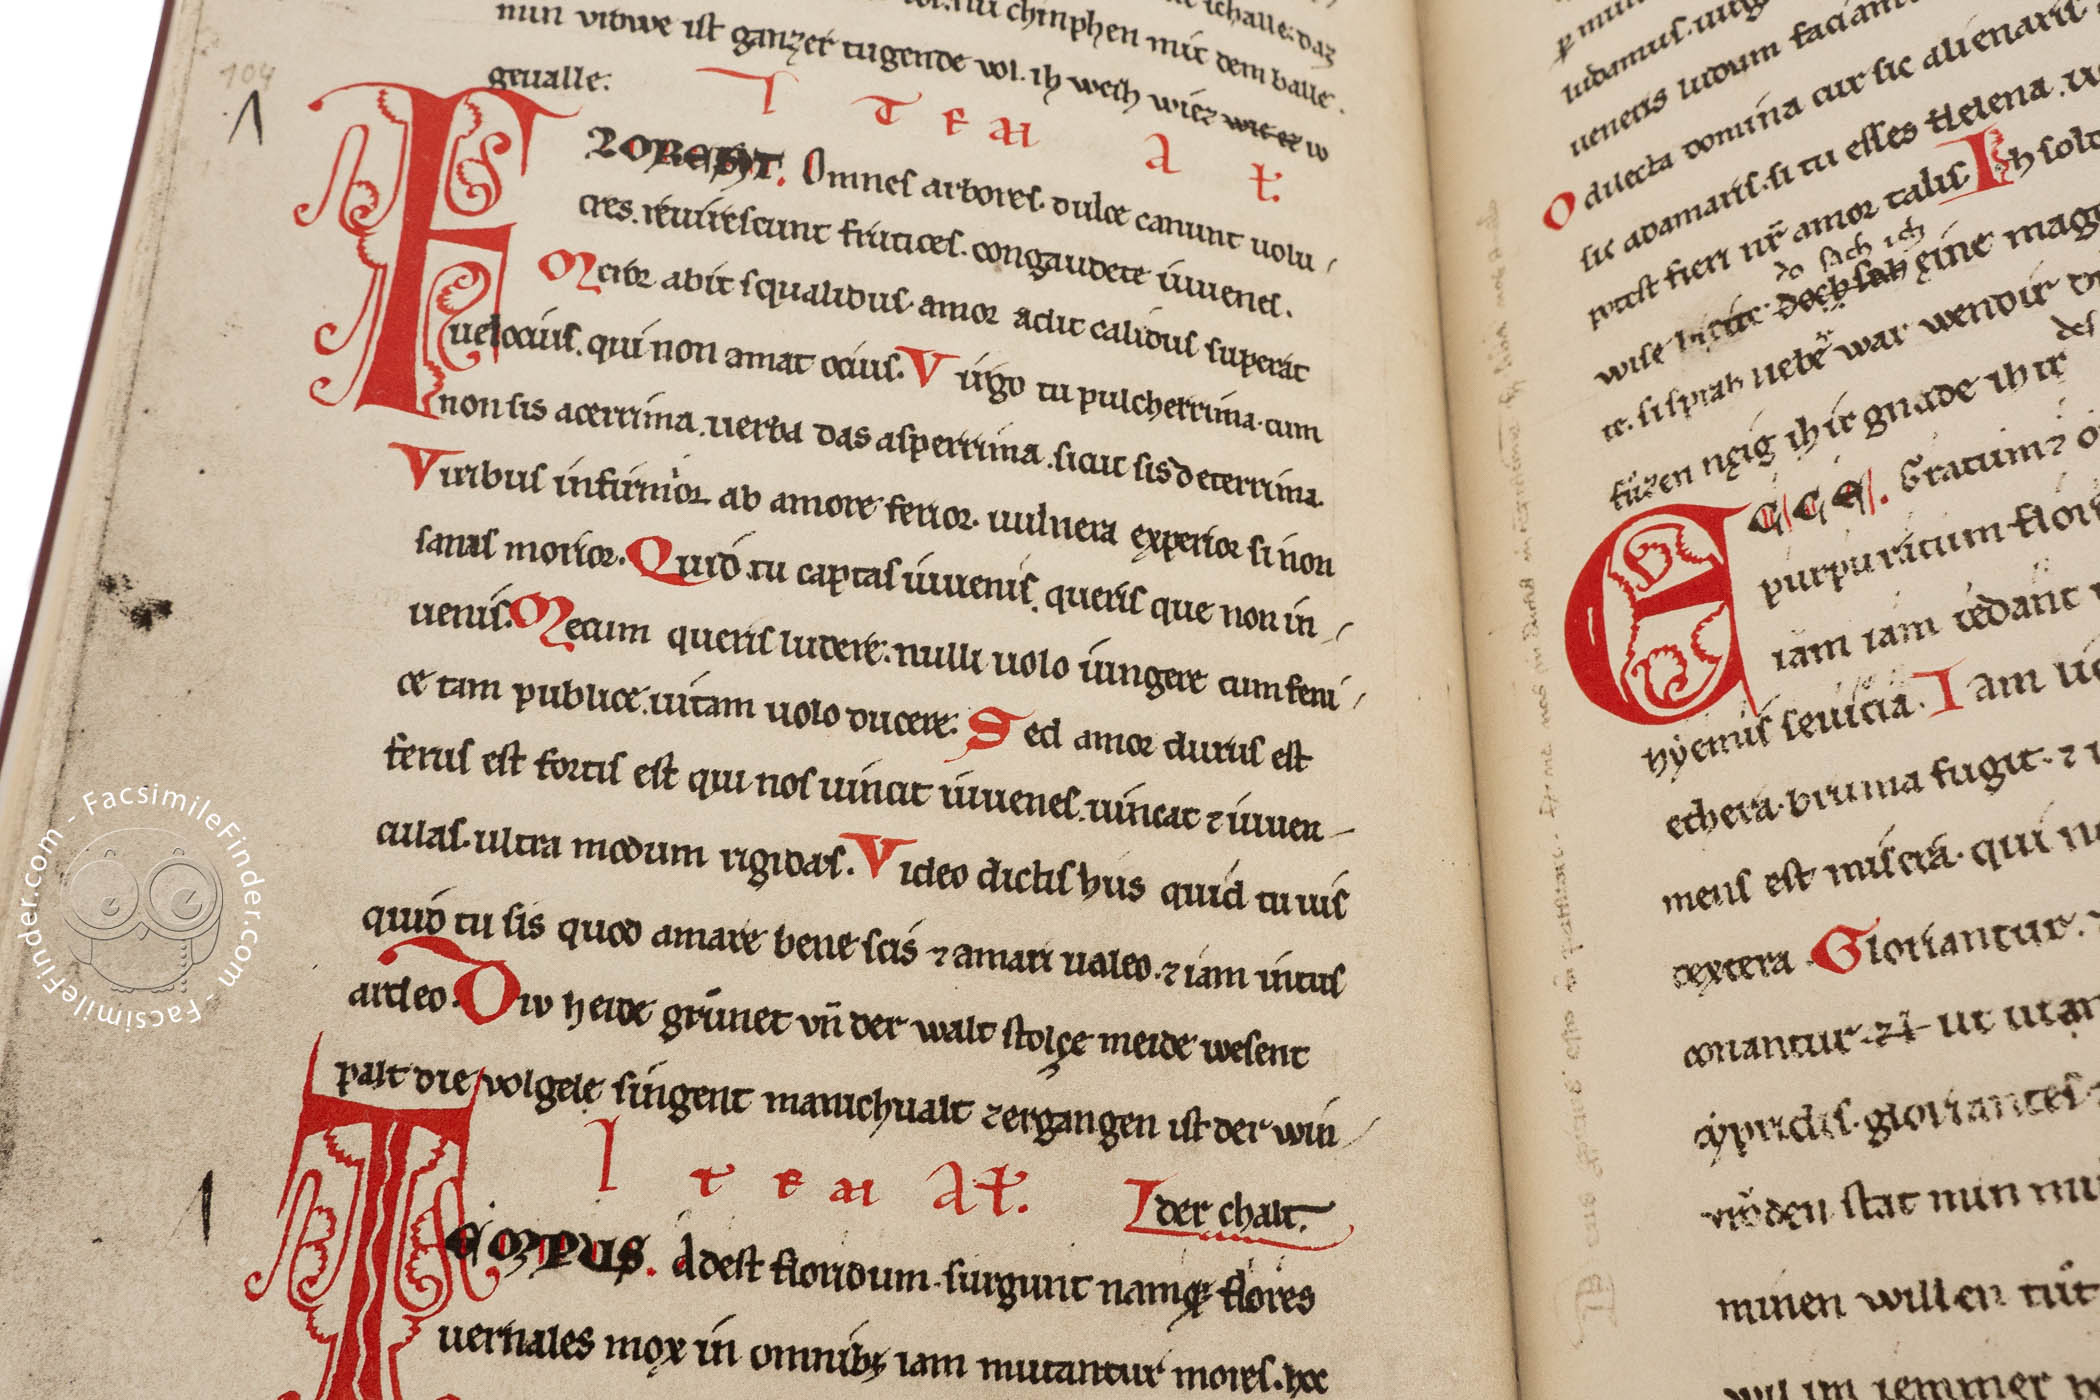 104
ichalle. daz
chinphen mit dem balle.
nun vitwe ist ganzer tugende vol. ih weih wiez wie ez w
geualle:
I T E M A t.
FLORESIT. Omnes arbores. dulce canunt uolu
cres. reuirescunt frutices. congaudete iuuenes.
Meror abit squalidus. amor adit calidus superat
uelocius. qui non amat ocius. Virgo tu pulcherrima. cum
non sis acerrima. uerba das asperrima. sicut sis deterrima.
Viribus infirmior. ab amore ferior. uulnera experior si non
sanas morior. Quid tu captas iuuenis. queris que non in
uenis. Mecum queris ludere. nulli uolo iungere cum feni
ce tam publice. uitam uolo ducere. Sed amor durus est
ferus est fortis est qui nos uincit iuuenes. uincat ⁊ iuuen
culas. ultra modum rigidas. Video dictis hiis quid tu uis
quid tu sis quod amare bene scis ⁊ amari ualeo. ⁊ iam intus
ardeo. Diu heide grůnet vn̄ der walt stolçe meide wesent
palt die volgele singent manichualt zergangen ist der win
I T E M At. der chalt.
TEMPUS. Adest floridum. surgunt namq; flores
uernales mox in omnib; iam mutantur mores. hoc
iudamus.
ueneris ludum faciam
O dilecta domina cur sic alienaris
sic adamaris. si tu esses Helena.
potest fieri nr̄ amor talis. Ih solde
do sach ich
wise doch sah eine mag
te. si sprah nebe war wendir
des
fůzen neig ih ir gnade ih ir
ECCE. Gratum ⁊ o
purpuratum flor
iam iam cedant
hyemis seuicia. Iam
ethera. bruma fugit. ⁊
mens est misera. qui n
dextera. Gloriantur.
conantur. ⁊ ut utan
cypridis. gloriantes
vrŏden stat nun mu
minen willen tůt
wil im iemmer
FacsimileFinder.com - FacsimileFinder.com - FacsimileFinder.com